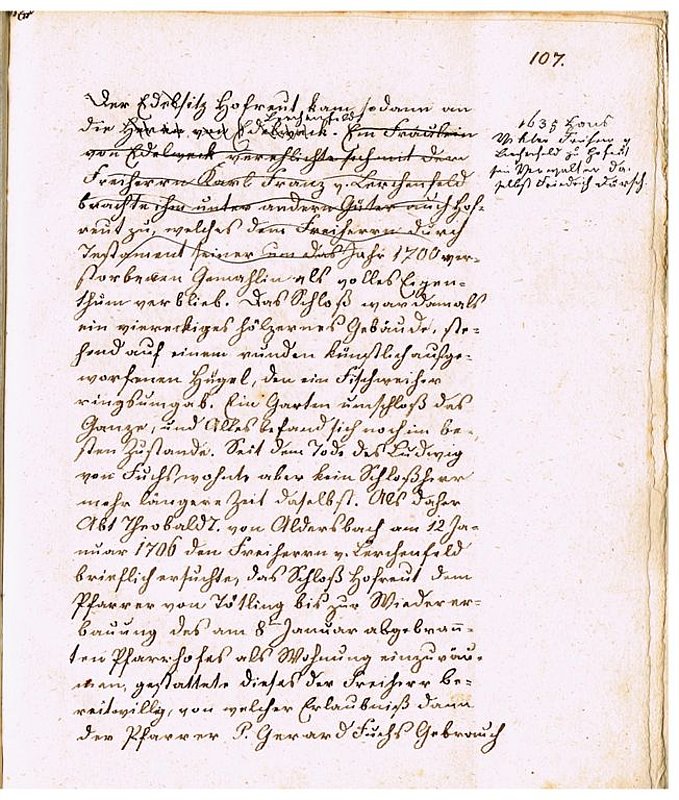 107.
Der Edelsitz Hofreut kam sodann an
Lerchenfeld
die Herrn von Edelweck. Ein Fräulein
von Edelweck verehlichte sich mit dem
Freiherrn Karl Franz v. Lerchenfeld
brachte ihm unter andern Güter auch Hof-
reut zu, welches dem Freiherrn durch
Testament seiner um das Jahr 1700 ver-
storbenen Gemahlin als volles Eigen-
thum verblieb. Das Schloß war damals
ein viereckiges hölzernes Gebäude, ste-
hend auf einem runden künstlich aufge-
worfenen Hügel, den ein Fischweiher
rings umgab. Ein Garten umschloß das
Ganze, und Alles befand sich noch im be-
sten Zustande. Seit dem Tode des Ludwig
von Fuchs wohnte aber kein Schloßherr
mehr längere Zeit daselbst. Als daher
Abt Theobald I. von Aldersbach am 12 Ja-
nuar 1706 den Freiherrn v. Lerchenfeld
brieflich ersuchte, das Schloß Hofreut dem
Pfarrer von Tötling bis zur Wiederer-
bauung des am 8t Januar abgebrann-
ten Pfarrhofes als Wohnung einzuräu-
men, gestattete dieses der Freiherr be-
reitwillig, von welcher Erlaubniß dann
der Pfarrer P. Gerard Fuchs Gebrauch
1635 Hans
v
Lerchenfeld zu Hofreut
sein Verwalter da-
selbst Friedrich Dorsch.